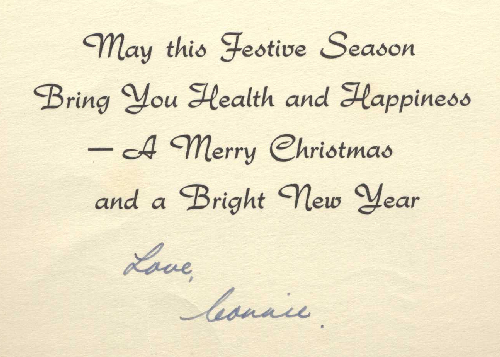 May this Festive Season
Bring You Health and Happiness
— A Merry Christmas
and a Bright New Year
Love,
Connie.